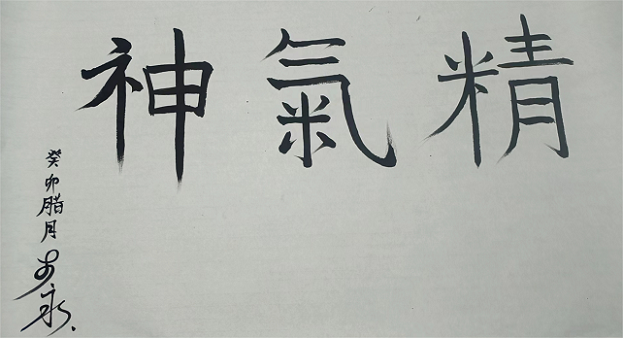 精氣神
癸卯腊月